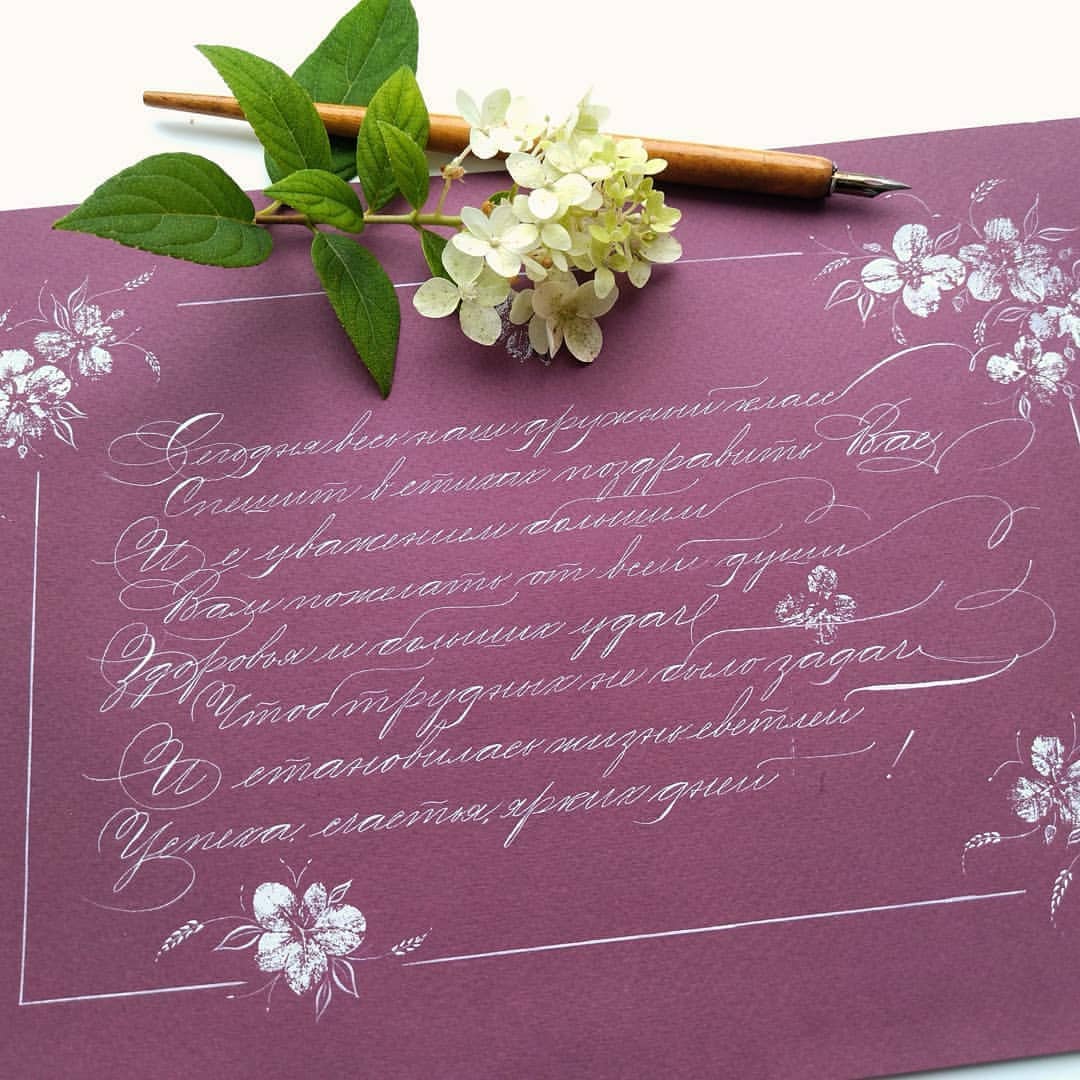 Сегодня весь наш дружный класс
Спешит в стихах поздравить Вас,
И с уважением большим
Вам пожелать от всей души
Здоровья и больших удач
Чтоб трудных не было задач
И становилась жизнь светлей
Успеха, счастья, ярких дней!